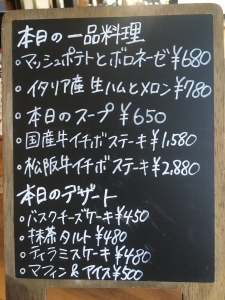 本日の一品料理
・マッシュポテトとボロネーゼ ¥680
・イタリア産 生ハムとメロン ¥780
・本日のスープ ¥650
・国産牛イチボステーキ ¥1,580
・松阪牛イチボステーキ ¥2,880
本日のデザート
・バスクチーズケーキ ¥450
・抹茶タルト ¥480
・ティラミスケーキ ¥480
・マフィン&アイス ¥500